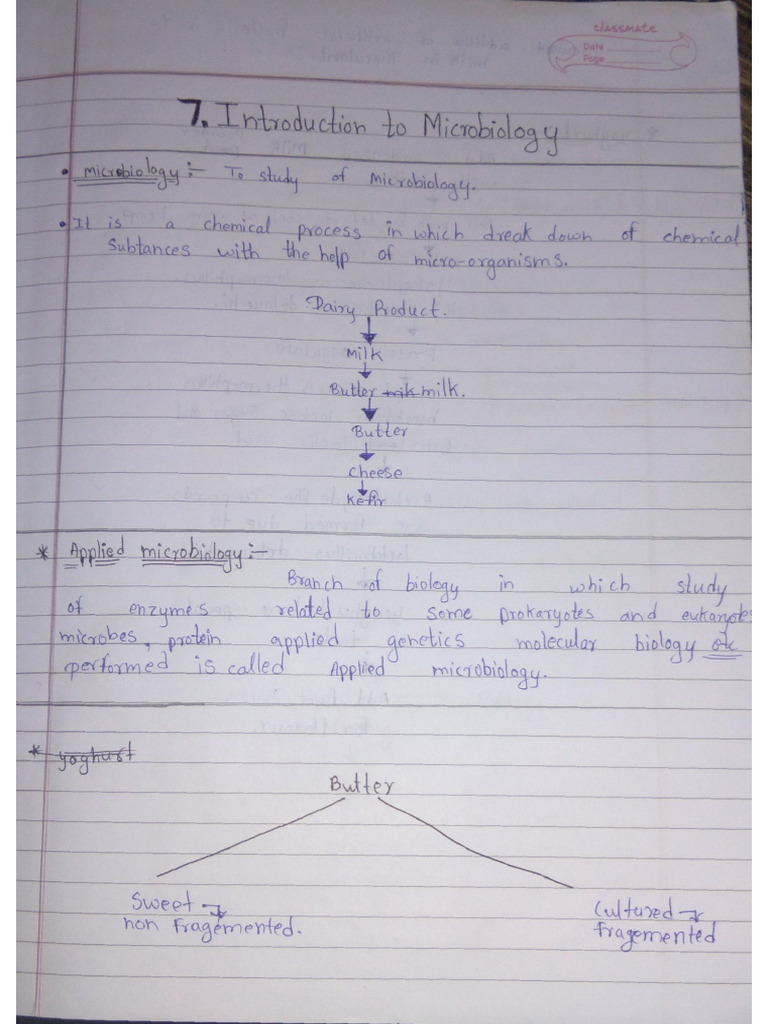 classmate
Date
Page
7. Introduction to Microbiology
• microbiology :- To study of Microbiology.
• It is a chemical process in which dreak down of chemical
Subtances with the help of micro-organisms.
Dairy Product.
↓
Milk
↓
Butter mik milk.
↓
Butter
↓
Cheese
↓
Kefir
* Applied microbiology :-
Branch of biology in which study
of enzymes related to some prokaryotes and eukaryote
microbes, protein applied genetics molecular biology etc
performed is called Applied microbiology.
* yoghurt
Butter
Sweet →
non Fragemented.
Cultured →
Fragemented